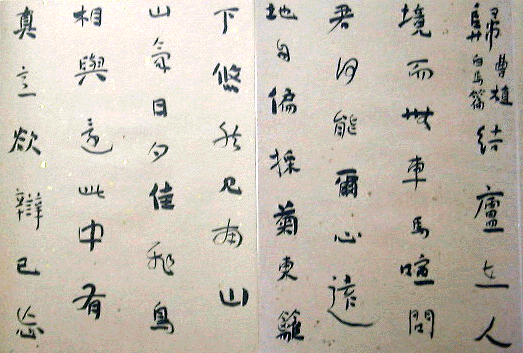 曹植
白馬篇
結廬在人
境而無車馬喧問
君何能爾心遠
地自偏採菊東籬
下悠然見南山
山氣日夕佳飛鳥
相與還此中有
真意欲辯已忘